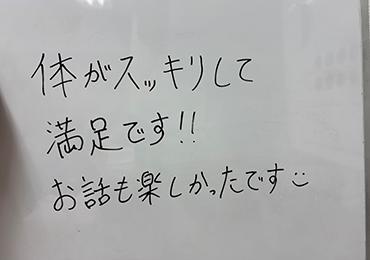 体がスッキリして
満足です!!
お話も楽しかったです☺